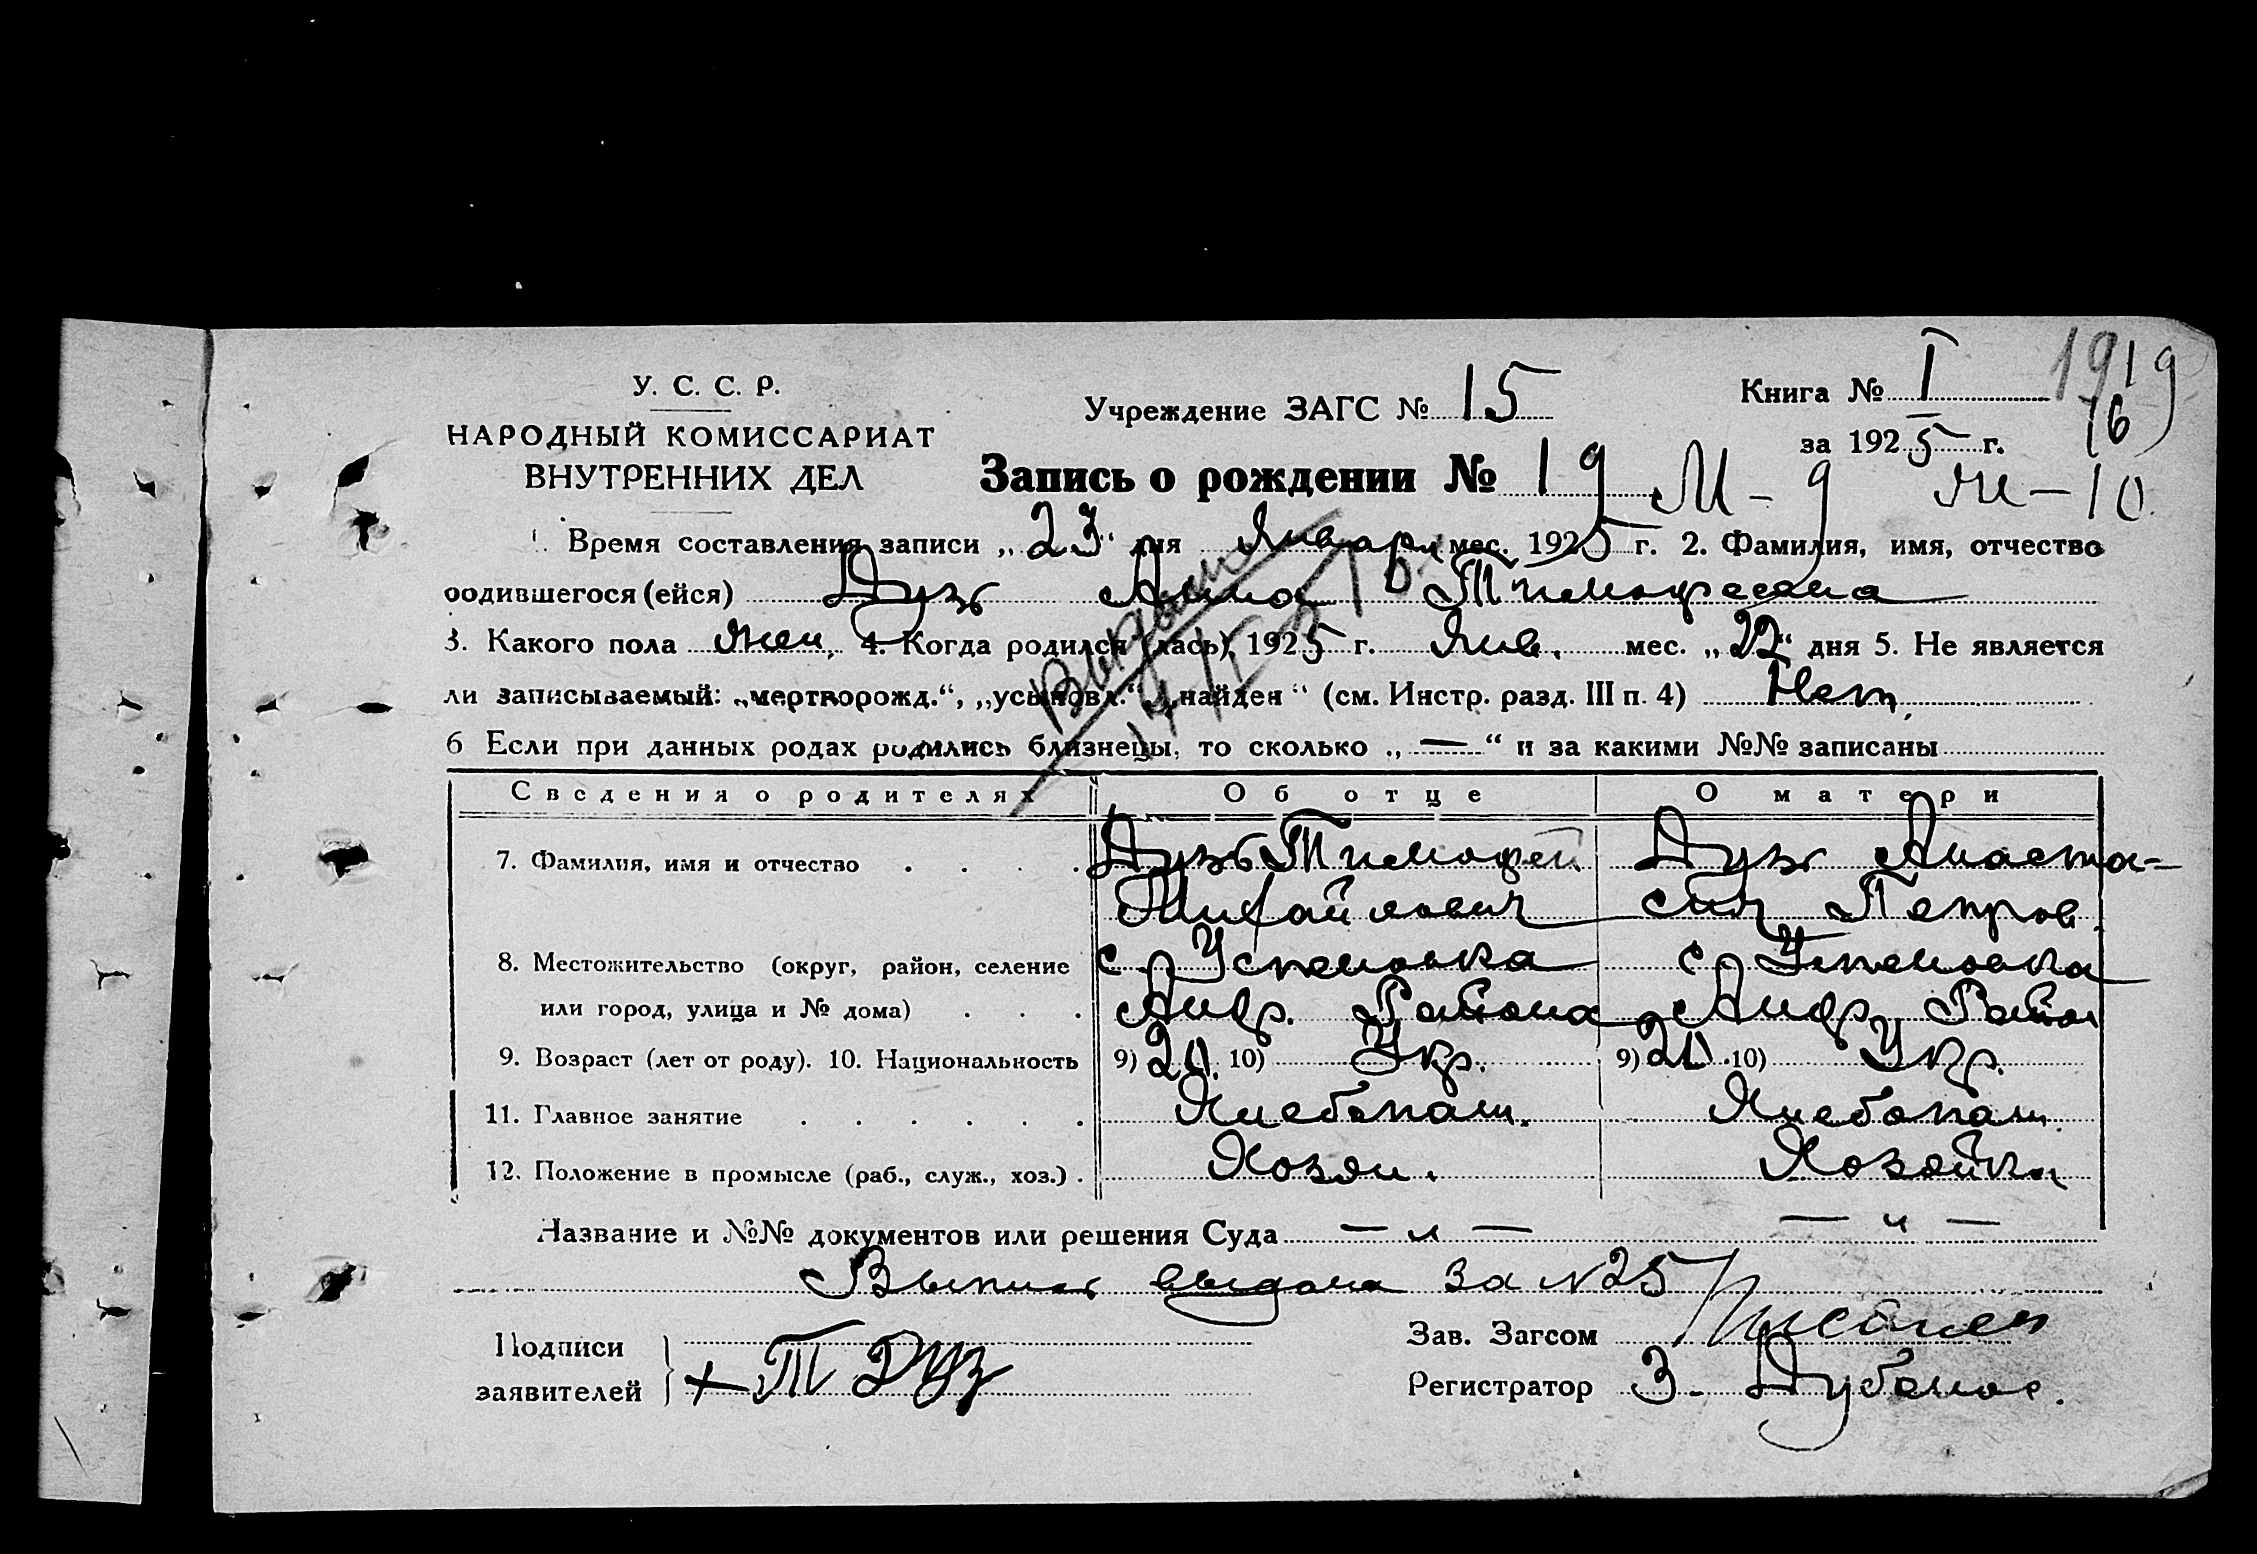 У. С. С. Р.
НАРОДНЫЙ КОМИССАРИАТ
ВНУТРЕННИХ ДЕЛ
Учреждение ЗАГС № 15
Книга № I
19 19
16
за 1925 г.
Запись о рождении № 19 М – 9 Ж – 10
1. Время составления записи „23“ дня Января мес. 1925 г. 2. Фамилия, имя, отчество
родившегося (ейся) Дузь Анна Тимофеевна
3. Какого пола жен. 4. Когда родился (лась) 1925 г. Янв. мес. „22“ дня 5. Не является
ли записываемый: „мертворожд.“, „усыновл.“ „найден“ (см. Инстр. разд. III п. 4) Нет.
6 Если при данных родах родились близнецы, то сколько „—“ и за какими №№ записаны
Сведения о родителях Об отце О матери
7. Фамилия, имя и отчество . . . . Дузь Тимофей Дузь Анаста-
Михайлович сия Петров.
8. Местожительство (округ, район, селение с. Успеновка с. Успеновка
или город, улица и № дома) . . . Андр. Района Андр. Район
9. Возраст (лет от роду). 10. Национальность 9) 20. 10) Укр. 9) 20 10) Укр.
11. Главное занятие . . . . . . Хлебопаш. Хлебопаш.
12. Положение в промысле (раб., служ., хоз.) . Хозяин. Хозяйка
Название и №№ документов или решения Суда — „ — — „ —
Выпись выдана за №25
Подписи
заявителей
+ Т Дуз
Зав. Загсом
Регистратор З. Дубеноc.